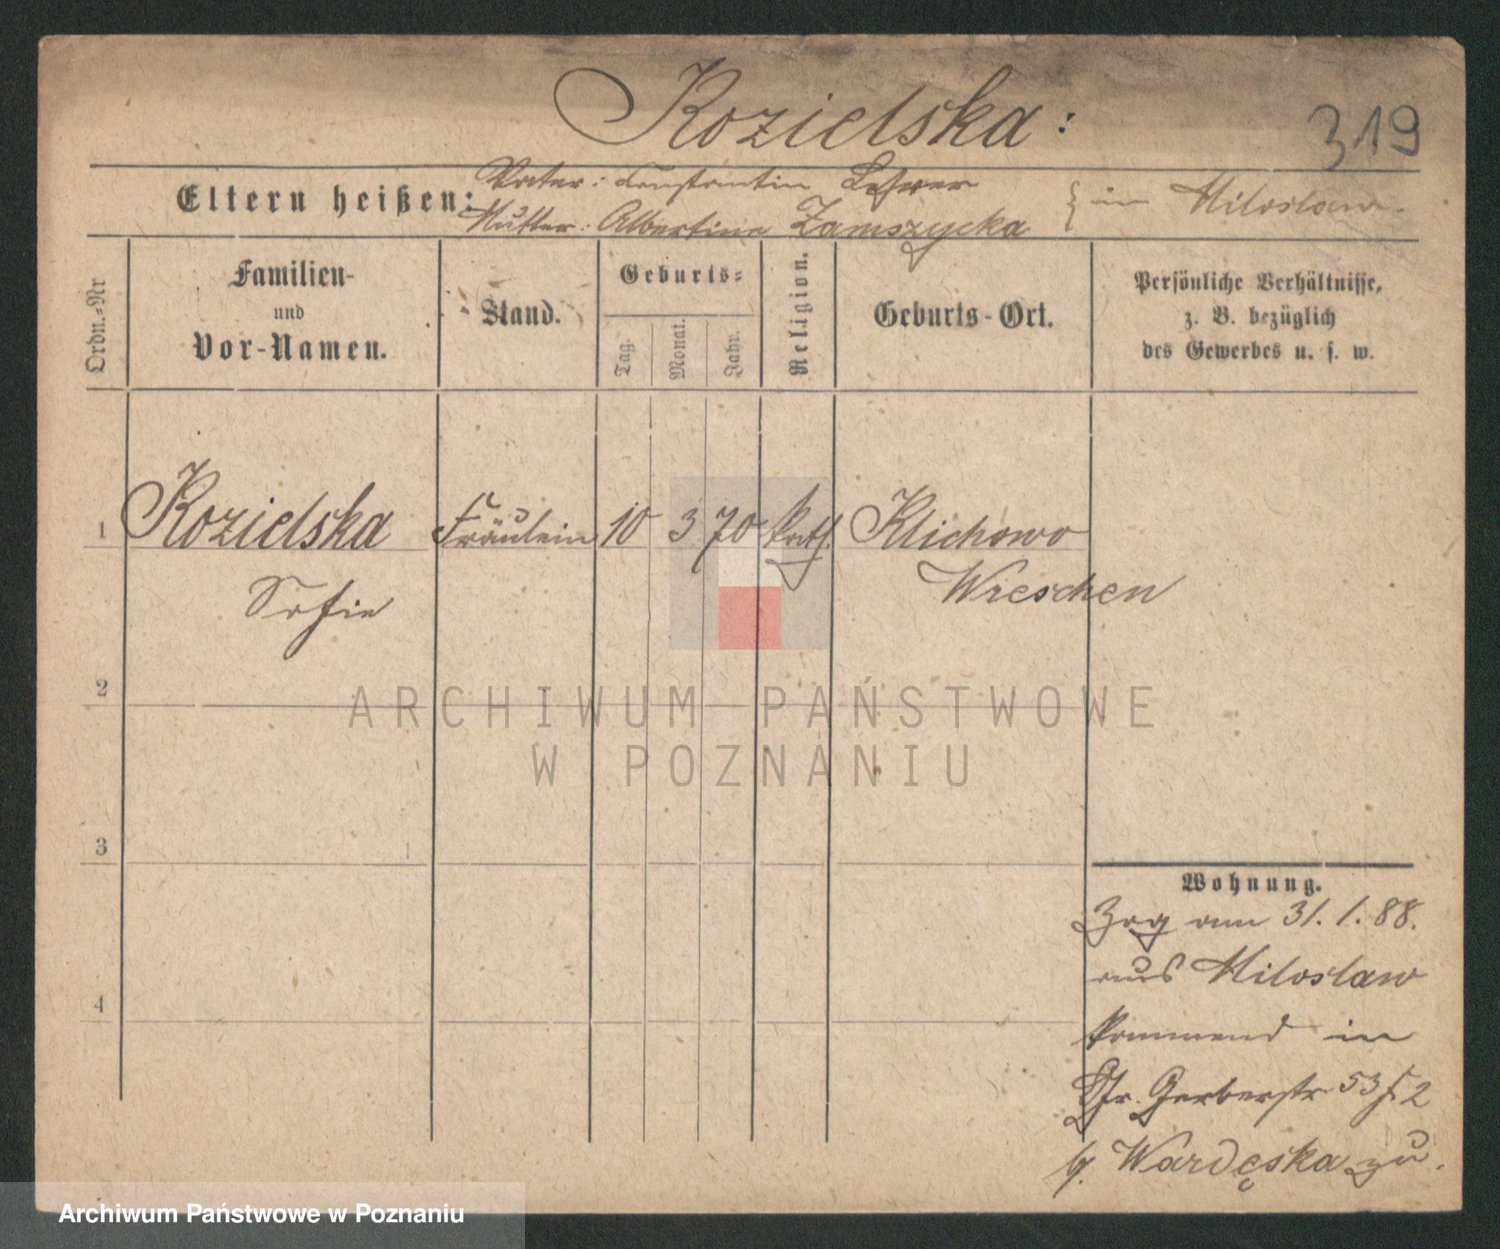 Kozielska:
319
Eltern heißen:
Vater: Constantin Lehrer
Mutter: Albertine Zamszycka
} in Miloslaw.
Ordn.=Nr
Familien-
und
Vor-Namen.
Stand.
Geburts=
Tag.
Monat.
Jahr.
Religion.
Geburts-Ort.
Persönliche Verhältnisse,
z. B. bezüglich
des Gewerbes u. s. w.
1 Kozielska Fräulein 10 3 70 kath. Klichowo
Sofie Wreschen
2
3
4
Wohnung.
Zog am 31.1.88.
aus Miloslaw
kommend in
Gr. Gerberstr 53 2
b. Wardęska zu.
ARCHIWUM PAŃSTWOWE
W POZNANIU
Archiwum Państwowe w Poznaniu